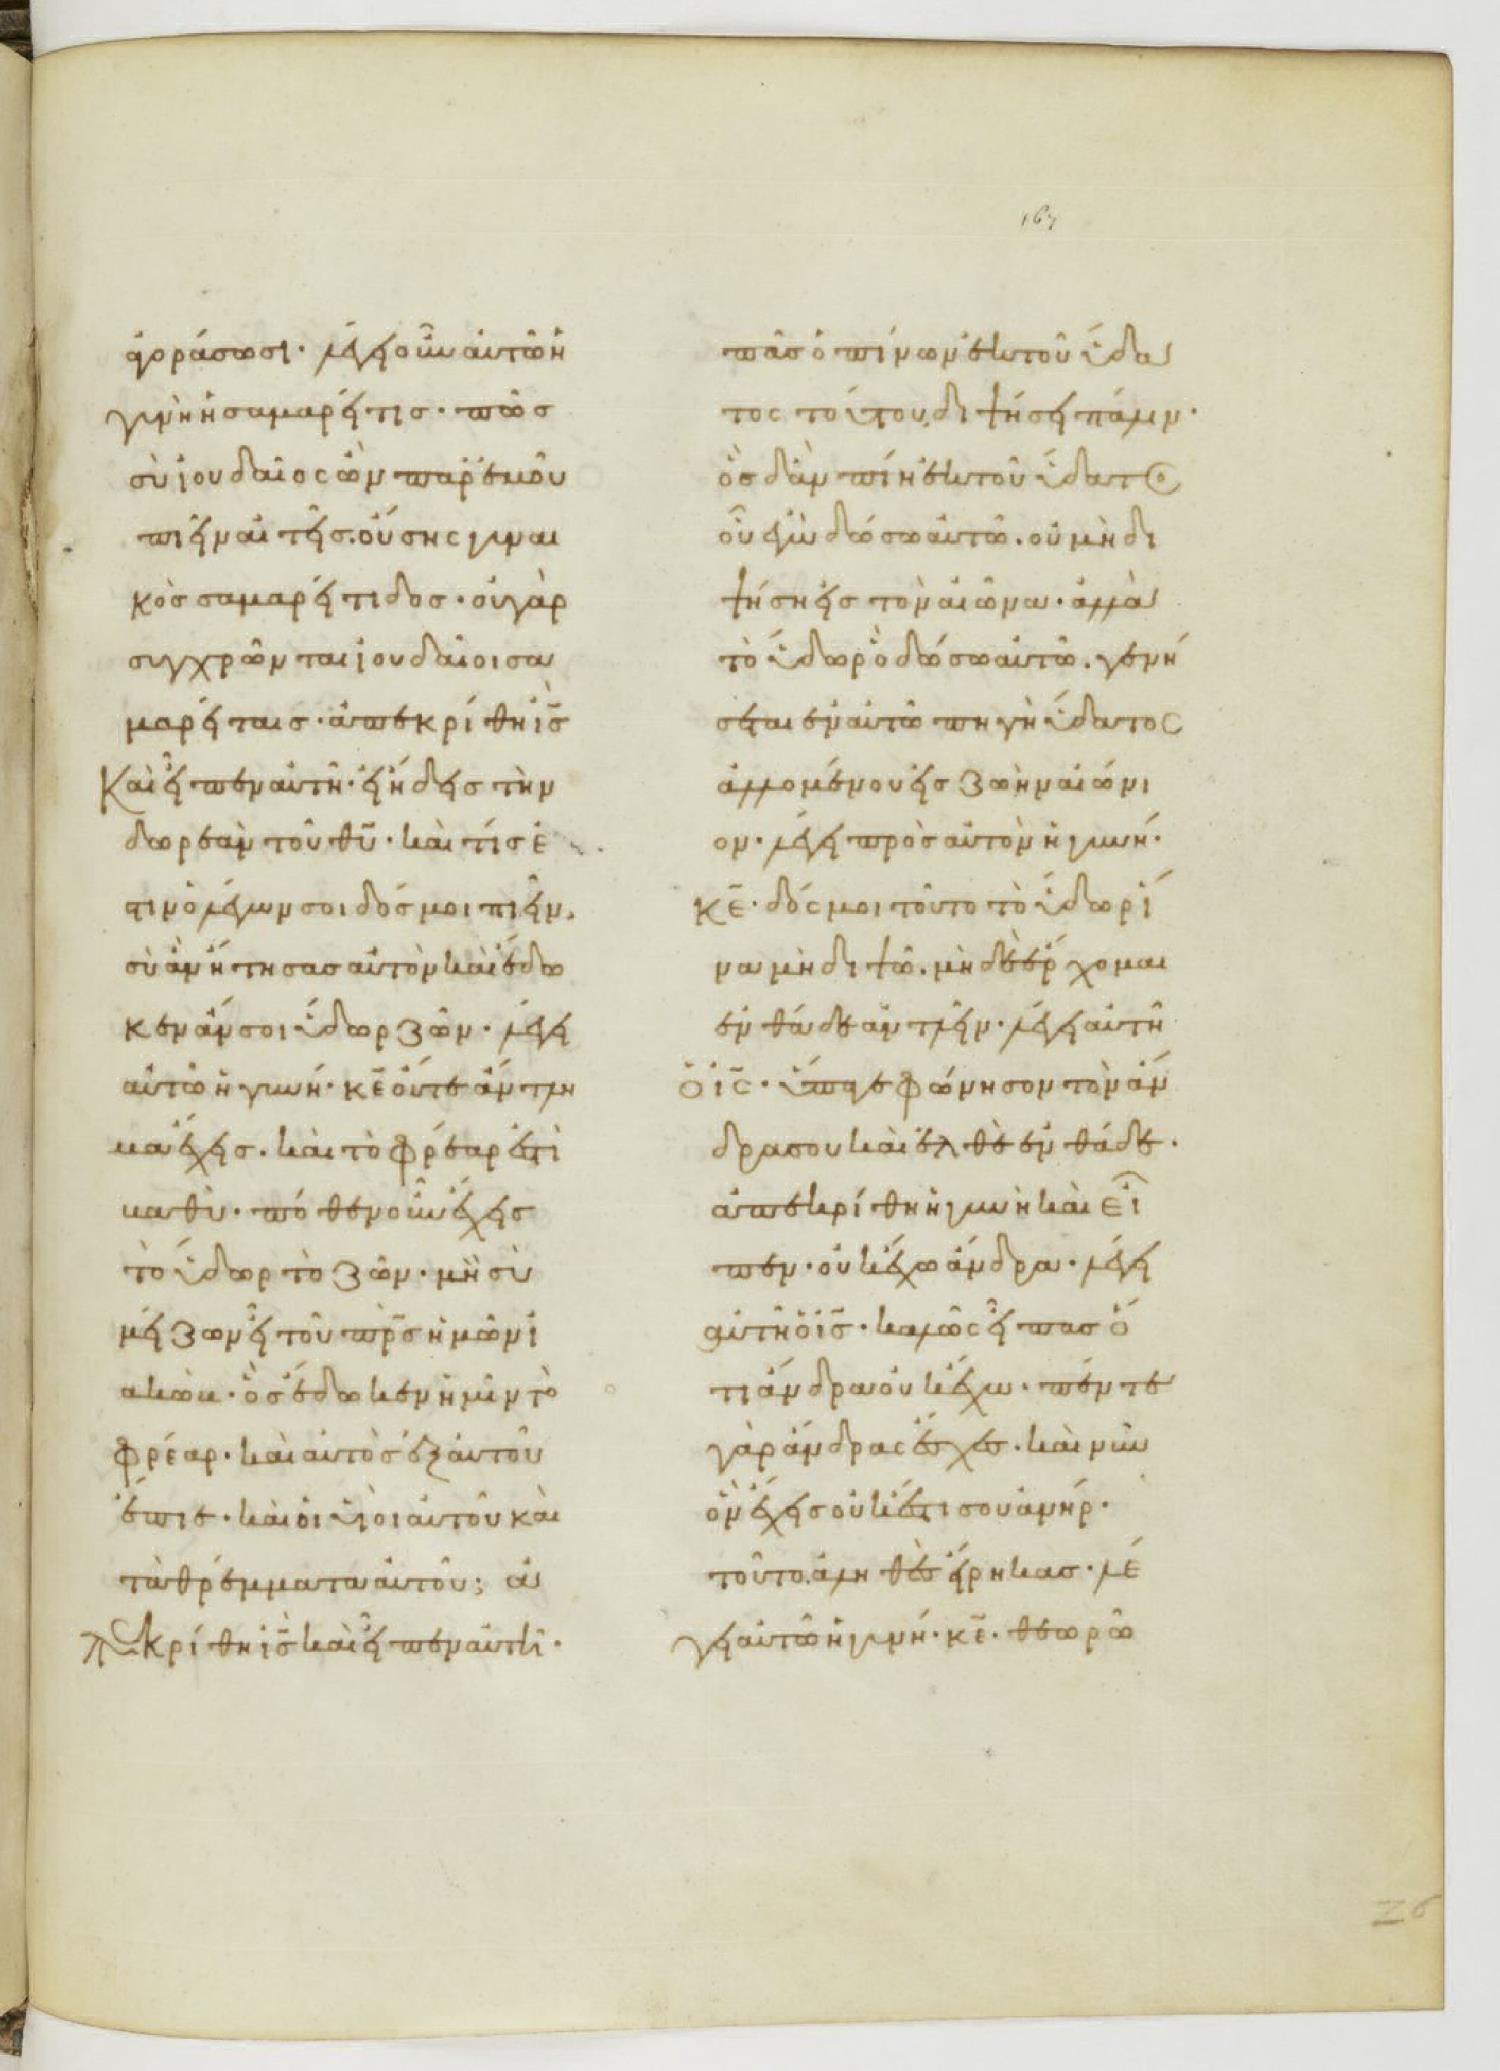 167
ἀγοράσωσι· λέγει οὖν αὐτῶ ἡ
γυνὴ ἡ σαμαρείτις· πῶς
σὺ ἰουδαῖος ὢν παρ᾽ ἐμοῦ
πιεῖν αἰτεῖς. οὔσης γυναι
κὸς σαμαρείτιδος· οὐ γὰρ
συγχρῶνται ἰουδαῖοι σα
μαρείταις· ἀπεκρίθη ἰ̅ς̅
καὶ εἶπεν αὐτῆ· εἰ ἤδεις τὴν
δωρεὰν τοῦ θ̅υ̅· καὶ τίς ἐ
στιν ὁ λέγων σοι δός μοι πιεῖν.
σὺ ἂν ἤτησας αὐτὸν καὶ ἔδω
κεν ἄν σοι ὕδωρ ζῶν· λέγει
αὐτῶ ἡ γυνή· κ̅ε̅ οὔτε ἄντλη
μα ἔχεις. καὶ τὸ φρέαρ ἐστὶ
βαθύ· πόθεν οὖν ἔχεις
τὸ ὕδωρ τὸ ζῶν· μὴ σὺ
μείζων εἶ τοῦ π̅ρ̅ς̅ ἡμῶν ἰ
ακώβ· ὃς ἔδωκεν ἡμῖν τὸ
φρέαρ· καὶ αὐτὸς ἐξ αὐτοῦ
ἔπιε· καὶ οἱ υἱοὶ αὐτοῦ καὶ
τὰ θρέμματα αὐτοῦ; ἀ
πεκρίθη ἰ̅ς̅ καὶ εἶπεν αὐτῆ·
πᾶς ὁ πίνων ἐκ τοῦ ὕδα
τος τούτου, διψήσει πάλιν·
ὃς δ᾽ ἂν πίη ἐκ τοῦ ὕδατος
οὗ ἐγὼ δώσω αὐτῶ. οὐ μὴ δι
ψήση εἰς τὸν αἰῶνα· ἀλλὰ
τὸ ὕδωρ ὃ δώσω αὐτῶ. γενή
σεται ἐν αὐτῶ πηγὴ ὕδατος
ἁλλομένου εἰς ζωὴν αἰώνι
ον· λέγει πρὸς αὐτὸν ἡ γυνή·
κ̅ε̅· δός μοι τοῦτο τὸ ὕδωρ ἵ
να μὴ διψῶ. μὴ δὲ ἔρχομαι
ἐνθάδε ἀντλεῖν· λέγει αὐτῆ
ὁ ἰ̅ς̅· ὕπαγε φώνησον τὸν ἄν
δρα σου καὶ ἐλθὲ ἐνθάδε·
ἀπεκρίθη ἡ γυνὴ καὶ εἶ
πεν· οὐκ ἔχω ἄνδρα· λέγει
αὐτῆ ὁ ἰ̅ς̅· καλῶς εἶπας ὅ
τι ἄνδρα οὐκ ἔχω· πέντε
γὰρ ἄνδρας ἔσχες· καὶ νῦν
ὃν ἔχεις οὐκ ἔστι σου ἀνήρ·
τοῦτο ἀληθὲς εἴρηκας· λέ
γει αὐτῶ ἡ γυνή· κ̅ε̅· θεωρῶ